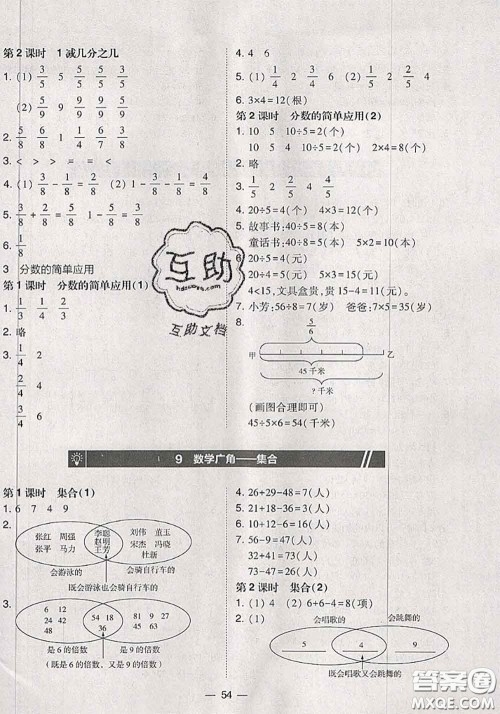 第2课时 1减几分之几
1. (1) 3/5 5/5 5/5 3/8 5/8
(2) 5/9 9/9 9/9 5/9 4/9
2. 5/8 3/8 1 5/8 3/8
3. < > = = < <
4. (1) 3/8 - 1/8 (2) 4/8 - 3/8
5. 3/8 + 2/8 = 5/8 1 - 5/8 = 3/8
6. 1/8
3 分数的简单应用
第1课时 分数的简单应用(1)
1. 1/3 1/4 2/3
2. 略
3. 1/4 2
2/4 4
3/4 6
4. 4 6
5. (1) 1/4 2/4 (2) 1/5 3/5
6. 3×4=12(根)
第2课时 分数的简单应用(2)
1. 10 5 10÷5=2(个)
10 5 10÷5=2(个) 2×4=8(个)
2. 略
3. 1/5 2 2/5 4
4. 20÷5=4(个) 4×3=12(个)
5. 故事书:40÷5=8(本)
童话书:40÷8=5(本)
6. 20÷5=4(元)
4<15,文具盒贵,贵15-4=11(元)
7. 小芳:56÷8=7(岁) 爸爸:7×5=35(岁)
8. 5/6
甲 乙
45千米
?千米
(画图合理即可)
45÷5×6=54(千米)
9 数学广角——集合
第1课时 集合(1)
1. 6 7 4 9
2.
张红 周强 李聪 刘伟 董玉
张平 马力 赵明 宋杰 冯晓
王芳 杜新
会游泳的 会骑自行车的
既会游泳也会骑自行车的
3.
6 12 54 18 81 9 27
24 42 36 45 63
48
是6的倍数 是9的倍数
(既是6的倍数,又是9的倍数)
4. 26+29-48=7(人)
5. 24+28-47=5(人)
6. 31+29-52=8(人)
7. 28+31+14=73(人)
73-47=26(人)
第2课时 集合(2)
1. (1) 4 (2) 6+6-4=8(项)
2. (1) 会唱歌的 会跳舞的
5 4 3
既会唱歌又会跳舞的
54
互助
hdzuoye.com
互助文档
答案圈
MXQE.COM